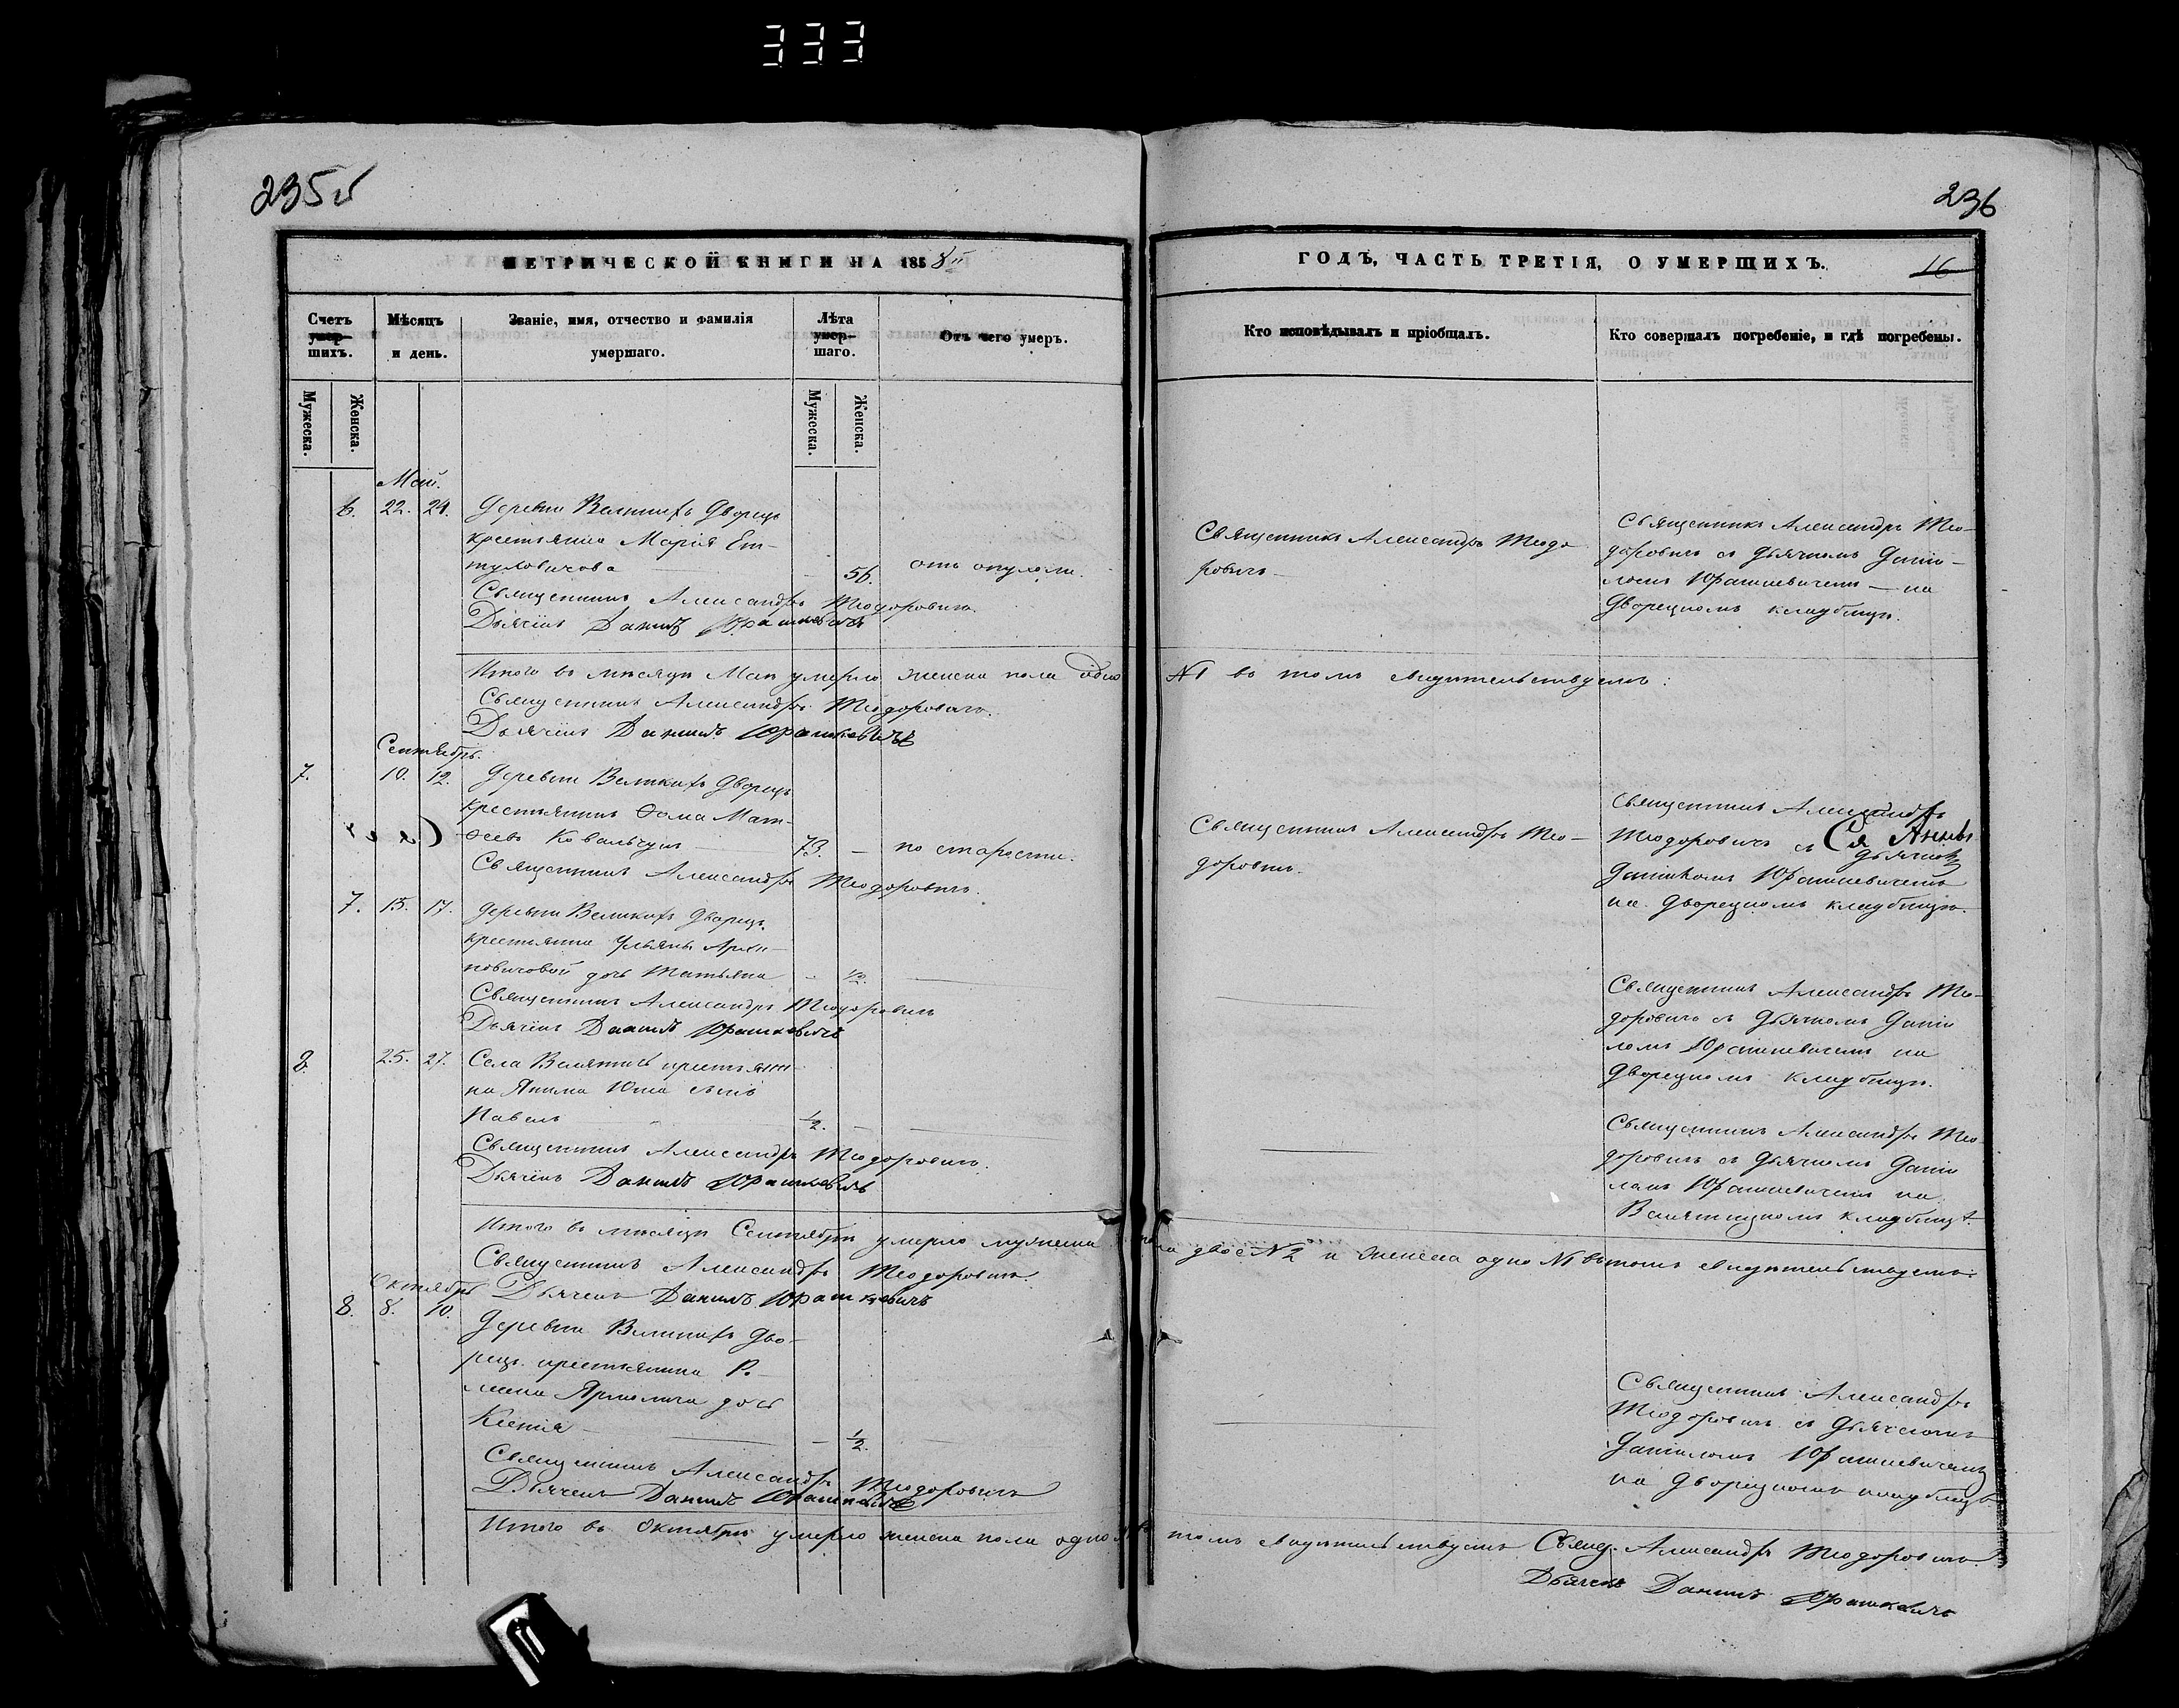 333
235об
236
МЕТРИЧЕСКОЙ КНИГИ НА 1858й
ГОДЪ, ЧАСТЬ ТРЕТІЯ, О УМЕРШИХЪ.
16
Счетъ умер-шихъ.
Мѣсяцъ и день.
Званіе, имя, отчество и фамилія умершаго.
Лѣта умер-шаго.
Отъ чего умеръ.
Кто исповѣдывалъ и пріобщалъ.
Кто совершалъ погребеніе, и гдѣ погребены.
Мужеска.
Женска.
Мужеска.
Женска.
Май.
6. 22. 24. Деревни Великихъ Дворецъ
крестьянка Марія Ев-
туховичова 56. отъ опухоли.
Священникъ Александръ Теодоровичъ.
Дьячекъ Данилъ Юрашкевичъ
Священникъ Александръ Теодо
ровичъ
Священникъ Александръ Тео-
доровичъ съ дьячкомъ Дани-
ломъ Юрашкевичемъ на
Дворецкомъ кладбищѣ.
Итого въ мѣсяцѣ Маѣ умерло женска пола одно №1 въ томъ свидѣтельствуемъ:
Священникъ Александръ Теодоровичъ.
Дьячекъ Данилъ Юрашкевичъ
Сентябрь.
7. 10. 12. Деревни Великихъ Дворецъ
крестьянинъ Ѳома Мат-
ѳеевъ Ковальчукъ 73. — по старости.
Священникъ Александръ Теодоровичъ.
Священникъ Александръ Тео-
доровичъ.
Священникъ Александръ
Теодоровичъ съ дьячкомъ
Даниломъ Юрашкевичемъ
на Дворецкомъ кладбищѣ.
7. 15. 17. Деревни Великихъ Дворецъ
крестьянки Ульяны Архи-
повичовой дочь Татьяна - 1/2.
Священникъ Александръ Теодоровичъ
Дьячекъ Данилъ Юрашкевичъ
Священникъ Александръ Тео-
доровичъ съ дьячкомъ Дани
ломъ Юрашкевичемъ на
Дворецкомъ кладбищѣ.
8. 25. 27. Села Велятичъ крестьяни-
на Якима Юша сынъ
Павелъ 1/2. —
Священникъ Александръ Теодоровичъ.
Дьячекъ Данилъ Юрашкевичъ
Священникъ Александръ Тео
доровичъ съ дьячкомъ Дани
ломъ Юрашкевичемъ на
Велятицкомъ кладбищѣ.
Итого въ мѣсяцѣ Сентябрѣ умерло мужеска пола двое №2 и женска одно №1 въ томъ свидѣтельствуемъ:
Священникъ Александръ Теодоровичъ.
Дьячекъ Данилъ Юрашкевичъ
Октябрь
8. 8. 10. Деревни Великихъ Дво-
рецъ крестьянина Р.
Ярмолича дочь
Ксенія — 1/2.
Священникъ Александръ Теодоровичъ
Дьячекъ Данилъ Юрашкевичъ
Священникъ Александръ
Теодоровичъ съ дьячкомъ
Даниломъ Юрашкевичемъ
на Дворецкомъ кладбищѣ
Итого въ Октябрѣ умерло женска пола одно томъ свидѣтельствуемъ Свящ. Александръ Теодоровичъ
Дьячекъ Данилъ Юрашкевичъ